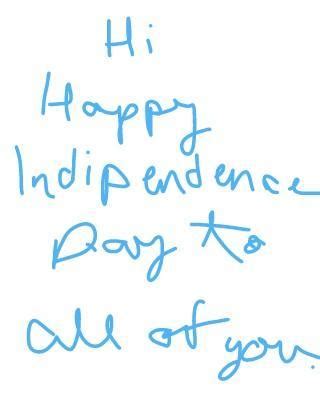 Hi
Happy
Indipendence
Day to
all of you.